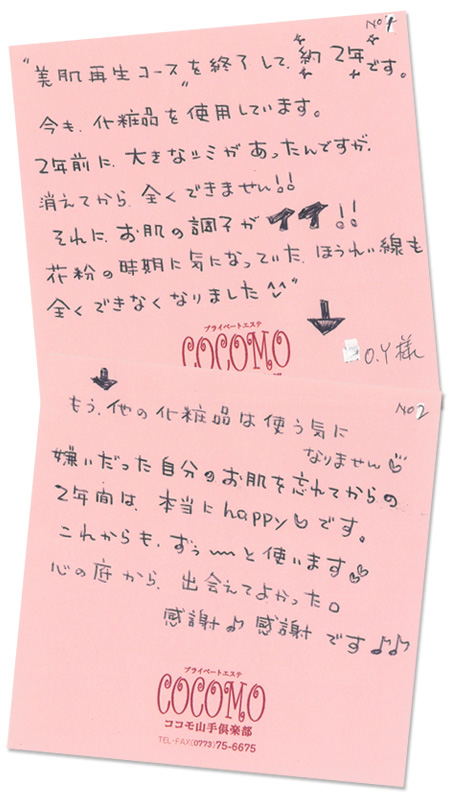 No1
"美肌再生コース"を終了して、約2年です。
今も、化粧品を使用しています。
2年前に、大きなシミがあったんですが、
消えてから、全くできません!!
それに、お肌の調子がイイ!!
花粉の時期に気になっていた、ほうれい線も
全くできなくなりました^^"
↓
プライベートエステ
COCOMO
O.Y様
↓
No2
もう、他の化粧品は使う気に
なりません♡
嫌いだった自分のお肌を忘れてからの
2年間は、本当にhappy♡です。
これからも、ずぅ〰と使います♡♡
心の底から、出会えてよかった。
感謝♪感謝です♪♪
プライベートエステ
COCOMO
ココモ山手倶楽部
TEL・FAX(0773)75-6675